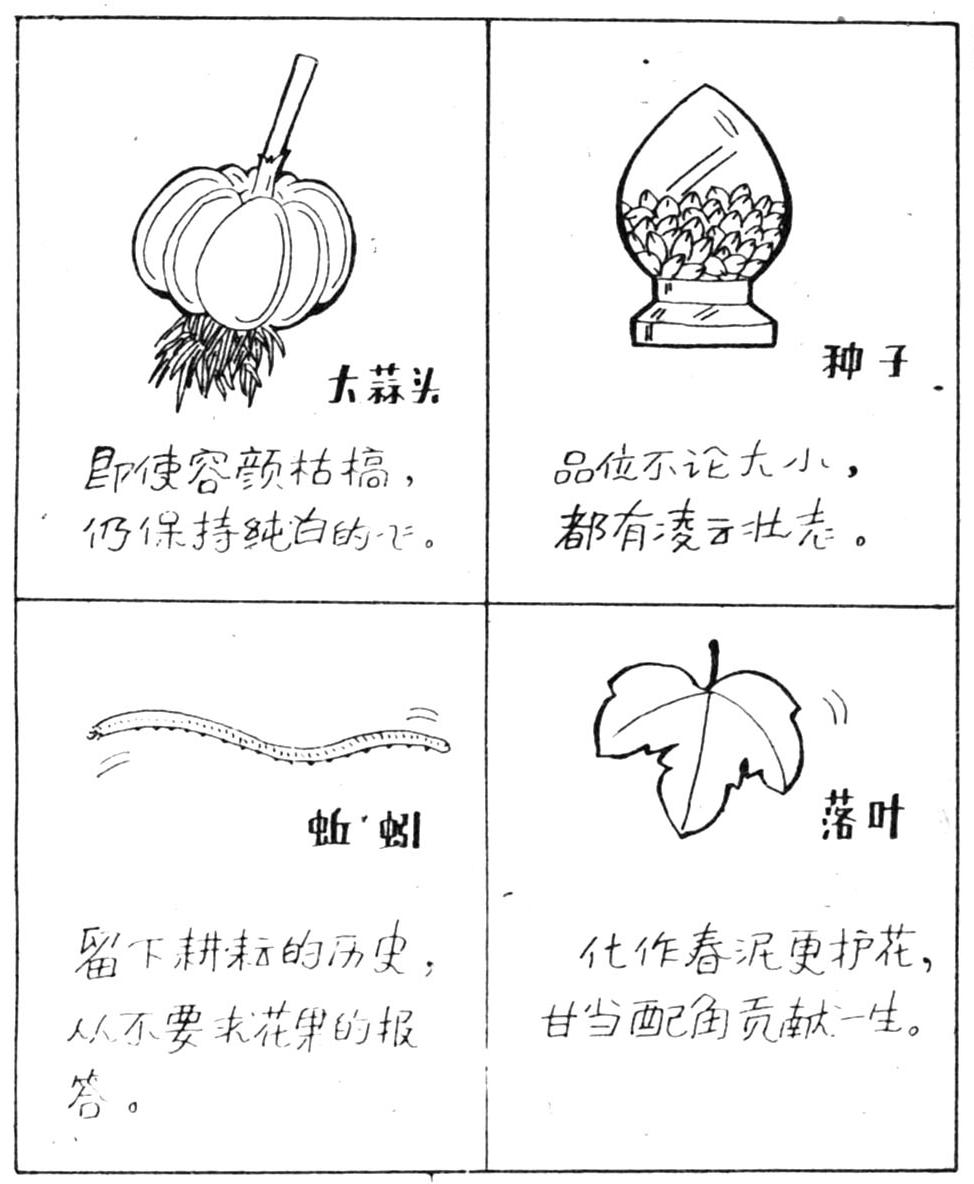 大蒜头
即使容颜枯槁，
仍保持纯白的心。
种子
品位不论大小，
都有凌云壮志。
蚯蚓
留下耕耘的历史，
从不要求花果的报
答。
落叶
化作春泥更护花，
甘当配角贡献一生。